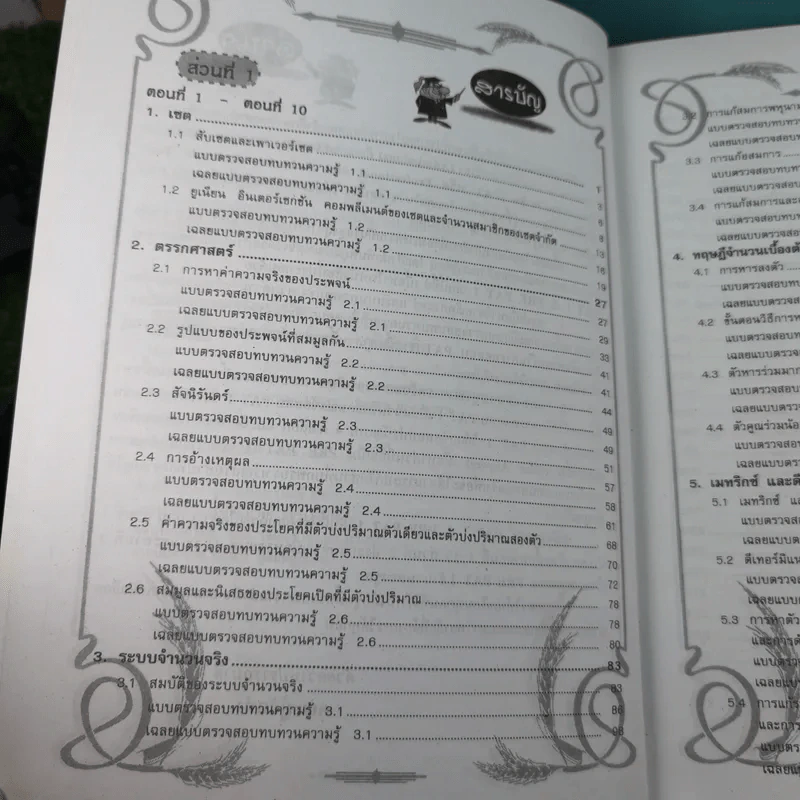 ส่วนที่ 1
สารบัญ
ตอนที่ 1 - ตอนที่ 10
1. เซต
1.1 สับเซตและเพาเวอร์เซต 1
แบบตรวจสอบทบทวนความรู้ 1.1
เฉลยแบบตรวจสอบทบทวนความรู้ 1.1
1.2 ยูเนียน อินเตอร์เซกชัน คอมพลีเมนต์ของเซตและจำนวนสมาชิกของเซตจำกัด
แบบตรวจสอบทบทวนความรู้ 1.2
เฉลยแบบตรวจสอบทบทวนความรู้ 1.2
2. ตรรกศาสตร์ 27
2.1 การหาค่าความจริงของประพจน์ 27
แบบตรวจสอบทบทวนความรู้ 2.1 29
เฉลยแบบตรวจสอบทบทวนความรู้ 2.1 33
2.2 รูปแบบของประพจน์ที่สมมูลกัน 41
แบบตรวจสอบทบทวนความรู้ 2.2 41
เฉลยแบบตรวจสอบทบทวนความรู้ 2.2 44
2.3 สัจนิรันดร์ 49
แบบตรวจสอบทบทวนความรู้ 2.3 49
เฉลยแบบตรวจสอบทบทวนความรู้ 2.3 51
2.4 การอ้างเหตุผล 57
แบบตรวจสอบทบทวนความรู้ 2.4 58
เฉลยแบบตรวจสอบทบทวนความรู้ 2.4 61
2.5 ค่าความจริงของประโยคที่มีตัวบ่งปริมาณตัวเดียวและตัวบ่งปริมาณสองตัว 68
แบบตรวจสอบทบทวนความรู้ 2.5 70
เฉลยแบบตรวจสอบทบทวนความรู้ 2.5 72
2.6 สมมูลและนิเสธของประโยคเปิดที่มีตัวบ่งปริมาณ 78
แบบตรวจสอบทบทวนความรู้ 2.6 78
เฉลยแบบตรวจสอบทบทวนความรู้ 2.6 80
3. ระบบจำนวนจริง 83
3.1 สมบัติของระบบจำนวนจริง 83
แบบตรวจสอบทบทวนความรู้ 3.1 86
เฉลยแบบตรวจสอบทบทวนความรู้ 3.1
3.2 การแก้สมการพหุนาม
แบบตรวจสอบทบทวน
เฉลยแบบตรวจสอบ
3.3 การแก้อสมการ
แบบตรวจสอบทบทวน
เฉลยแบบตรวจสอบ
3.4 การแก้สมการและ
แบบตรวจสอบ
เฉลยแบบตรวจสอบ
4. ทฤษฎีจำนวนเบื้องต้
4.1 การหารลงตัว
แบบตรวจสอบ
เฉลยแบบตรวจ
4.2 ขั้นตอนวิธีการห
แบบตรวจสอบ
เฉลยแบบตรวจ
4.3 ตัวหารร่วมมาก
แบบตรวจสอบ
เฉลยแบบตรวจ
4.4 ตัวคูณร่วมน้อ
แบบตรวจสอบ
เฉลยแบบตรว
5. เมทริกซ์ และดี
5.1 เมทริกซ์ แ
แบบตรวจส
เฉลยแบบตร
5.2 ดีเทอร์มิแน
แบบตรวจ
เฉลยแบบ
5.3 การหาตัว
และการดํ
แบบตรว
เฉลยแบบ
5.4 การแก้ร
และการ
แบบตรว
เฉลยแบ